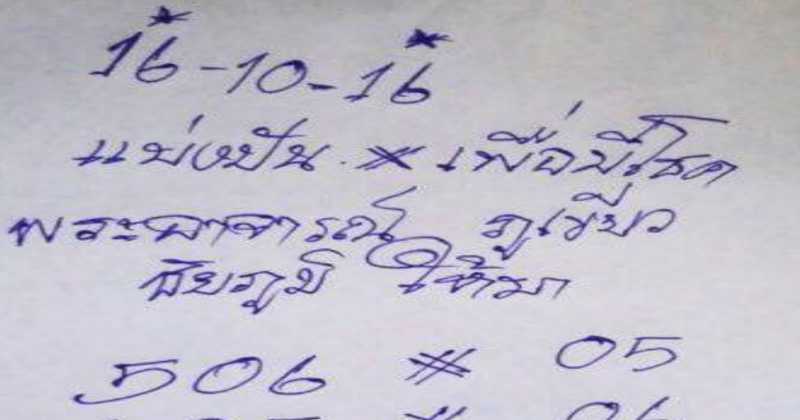 16-10-16
แบ่งปัน * เพื่อมีโชค
พระอาจารย์ ภูเขียว
ชัยภูมิ ให้มา
506 * 05